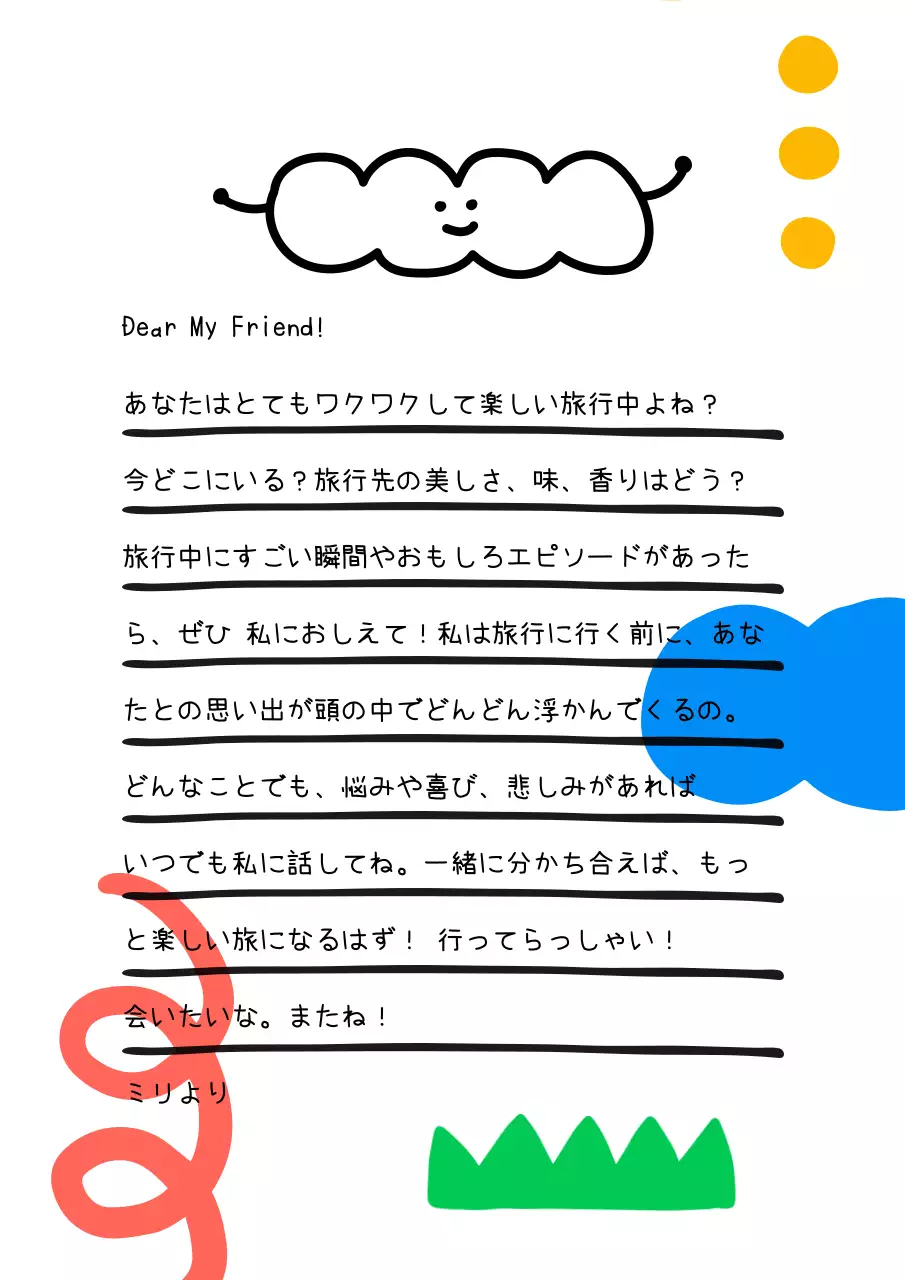 Dear My Friend!
あなたはとてもワクワクして楽しい旅行中よね？
今どこにいる？旅行先の美しさ、味、香りはどう？
旅行中にすごい瞬間やおもしろエピソードがあった
ら、ぜひ 私におしえて！私は旅行に行く前に、あな
たとの思い出が頭の中でどんどん浮かんでくるの。
どんなことでも、悩みや喜び、悲しみがあれば
いつでも私に話してね。一緒に分かち合えば、もっ
と楽しい旅になるはず！ 行ってらっしゃい！
会いたいな。またね！
ミリより